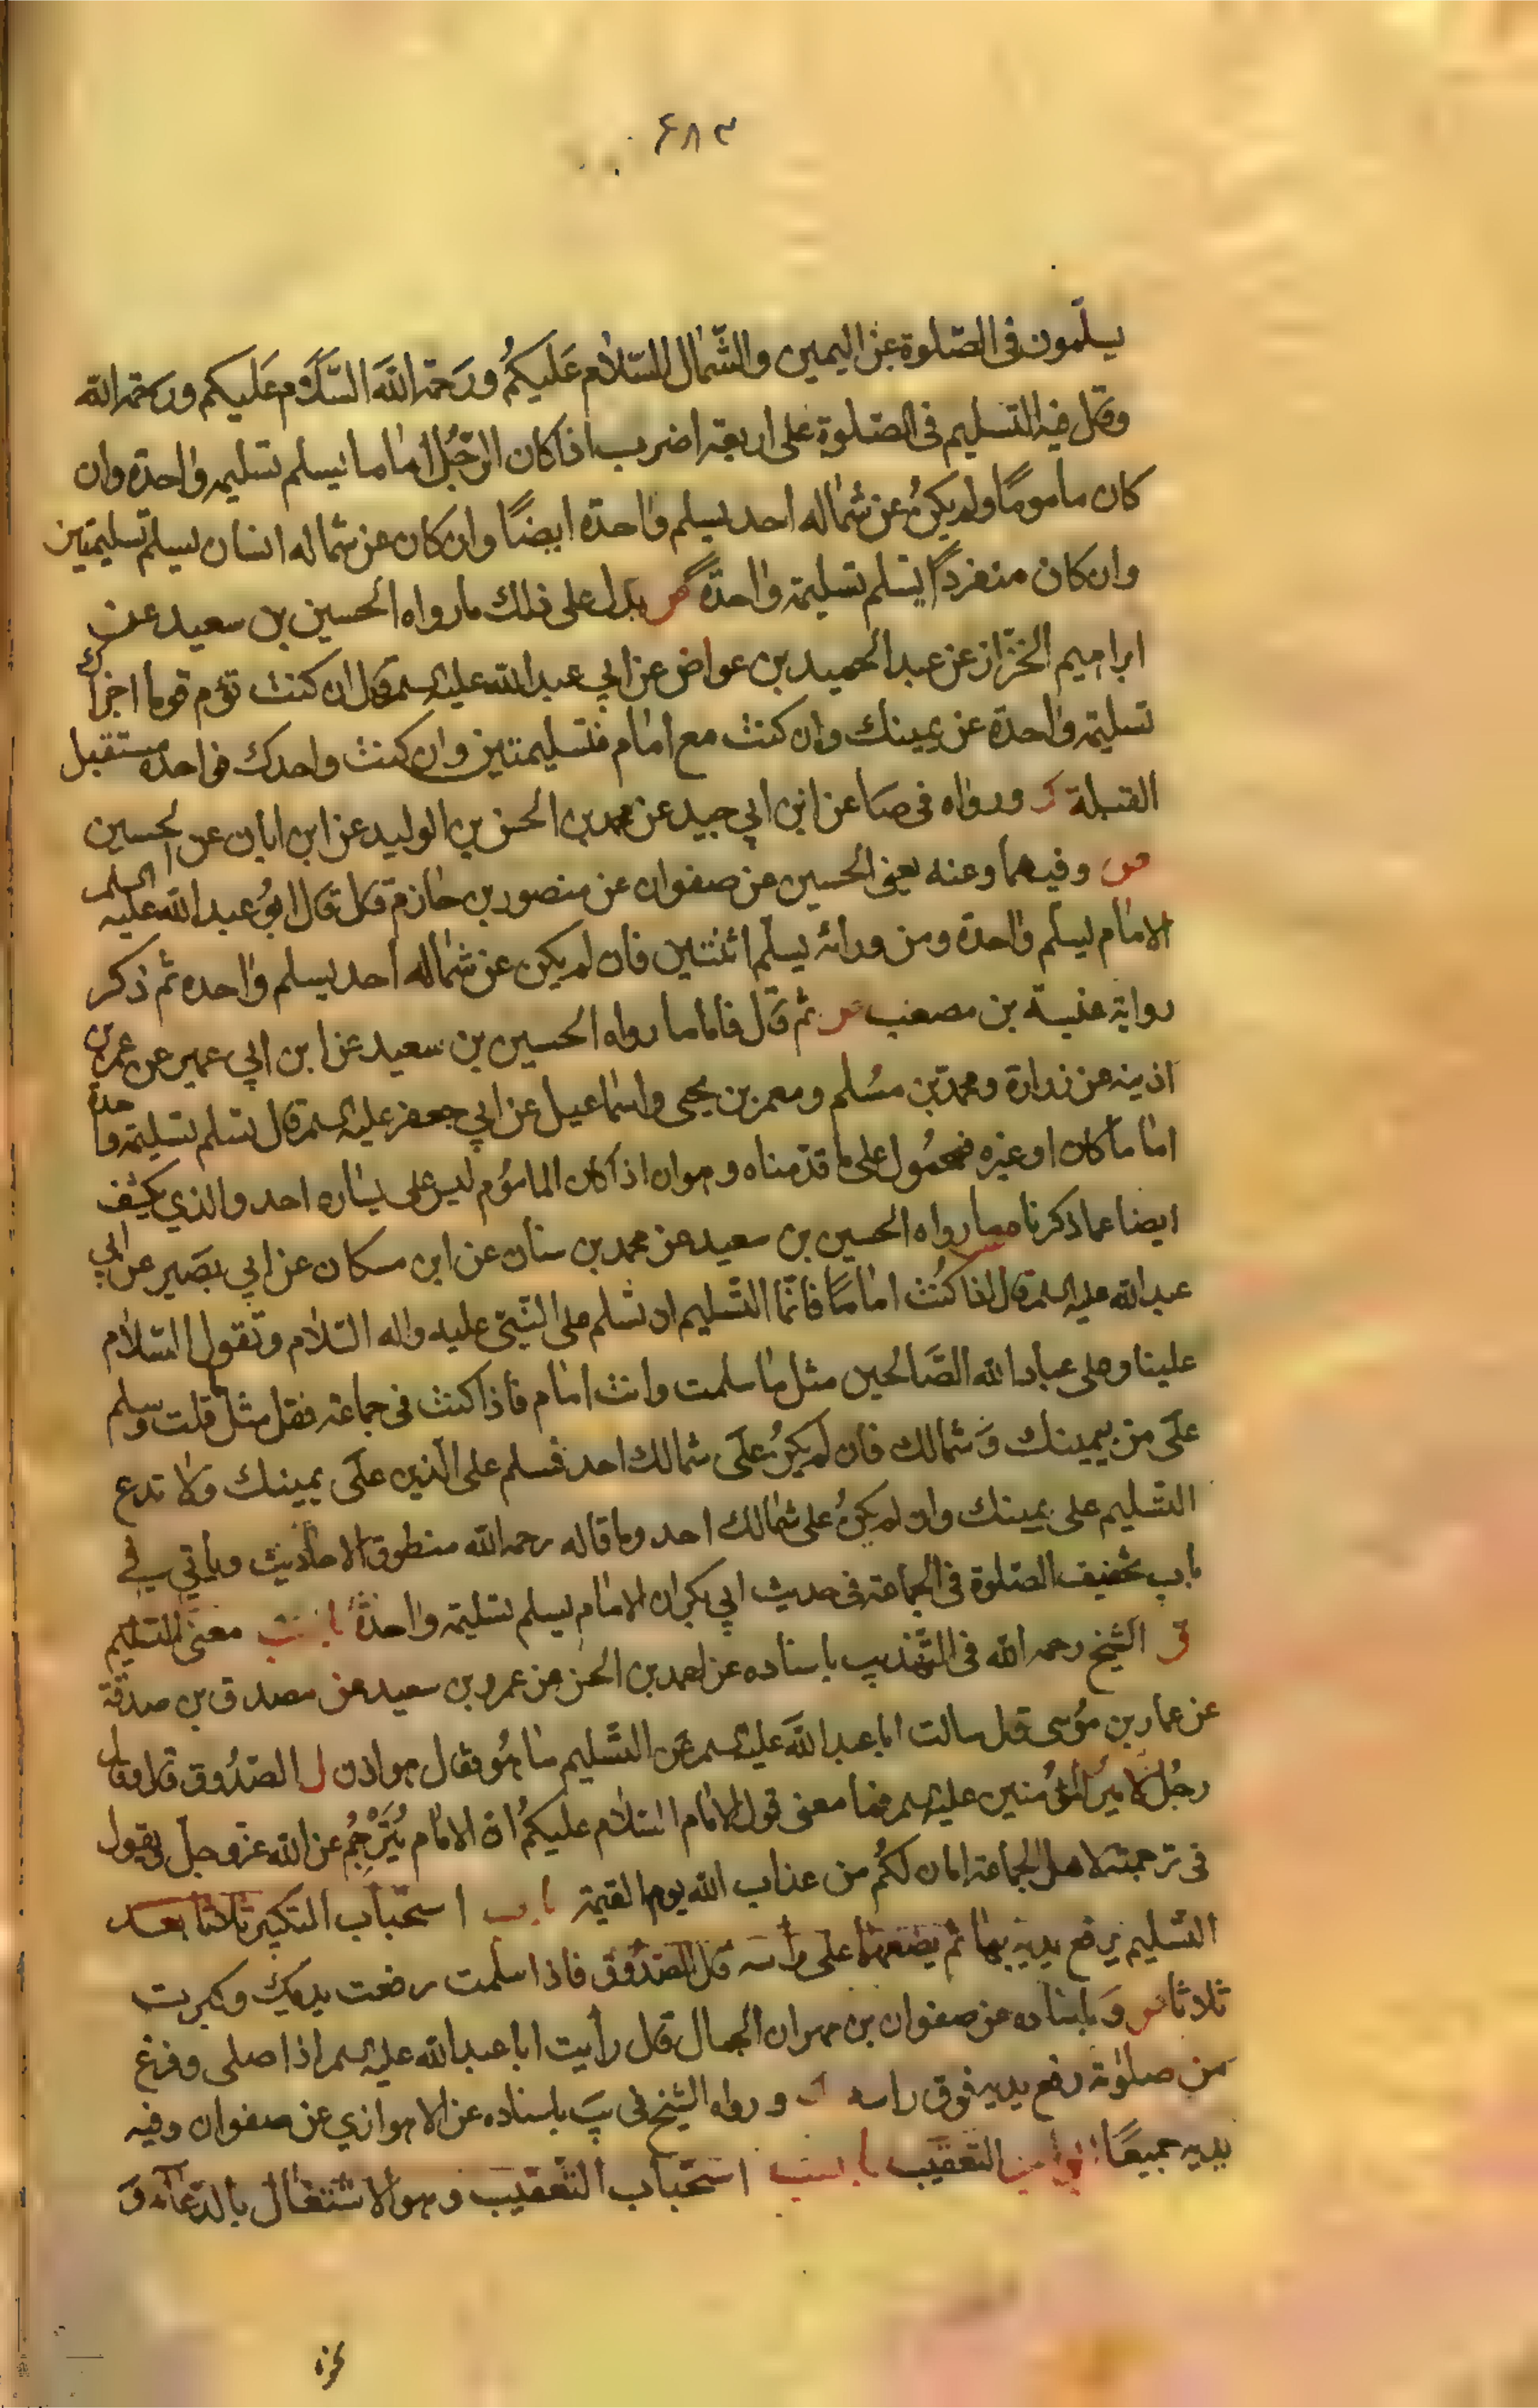 ۶۸۳
يسلّمون فى الصّلوة عن اليمين والشّمال السّلام عَليكمُ ورَحمة اللهَ السَّلَام عَليكم ورحمة الله
وقال فيه التسليم فى الصّلوة على اربعة اضرب اذا كان الرّجُل اماما يسلم تسليمة واحدة وان
كان ماموماً ولم يكنُ عن شماله احد يسلم واحدة ايضاً وان كان عن شماله انسان يسلم تسليمتين
وان كان منفرداً يسلم تسليمة واحدةً يدل على ذلك ما رواه الحسين بن سعيد عن
ابراهيم الخزّاز عن عبد الحميد بن عواض عن ابي عبد الله عليه السلم قال ان كنت تؤم قوما اجزأك
تسليمة واحدة عن يمينك وان كنت مع امام فتسليمتين وان كنت واحدك فواحدة مستقبل
القبلة ورواه فى صا عن ابن ابي جيد عن محمد بن الحسن بن الوليد عن ابن ابان عن الحسين
وفيهما وعنه يعنى الحسين عن صفوان عن منصور بن حازم قال قال ابوُ عبد الله عليه السلم
الامام يسلم واحدة ومن ورائه يسلم اثنتين فان لم يكن عن شماله احد يسلم واحده ثم ذكر
رواية عنبسة بن مصعب ثم قال فاما ما رواه الحسين بن سعيد عن ابن ابي عمير عن عمر بن
اذينه عن زرارة ومحمد بن مسُلم ومعمر بن يحيى واسماعيل عن ابي جعفر عليه السلم قال تسلم تسليمة واحدة
اماماً كان او غيره فمحمُول على ما قدّمناه وهو ان اذا كان المامُوم ليس على يساره احد والذي يكشف
ايضا عما ذكرنا ما رواه الحسين بن سعيد عن محمد بن سنان عن ابن مسكان عن ابي بصَير عن ابي
عبد الله عليه السلم قال اذا كنُت اماماً فانّما التّسليم ان تسلم على النّبيّ عليه واله السّلام وتقول السّلام
علينا وعلى عباد الله الصَّالحين مثل ما سلمت وانت امام فاذا كنت فى جماعة فقل مثل ما قلت وسلم
علَى من بيمينك وَشمالك فان لم يكنُ علَى شمالك احد فسلم على الّذين علَى يمينك ولا تدع
التّسليم على يمينك وان لم يكنُ على شمالك احد وما قاله رحمه الله منطوق الاحاديث وياتي في
باب تخفيف الصّلوة فى الجماعة فى حديث ابي بكر ان الامام يسلم تسليمة واحدةً باب معنى التسليم
الشيخ رحمه الله فى التّهذيب باسناده عن احمد بن الحسن عن عمرو بن سعيد عن مصدق بن صدقة
عن عمار بن مُوسى قال سالت ابا عبد اللهَ عليه السلم عن التّسليم ما هُو فقال هو اذن ل الصّدُوق قال وقال
رجُل لاميرالمؤمُنين عليه السلم فما معنى قول الامام السّلام عليكمُ ان الامام يُتَرْجِمُ عن الله عزّ وجلّ ويقول
فى ترجمته لاهل الجماعة امان لكمُ من عذاب الله يوم القيمة باب استحباب التكبير ثلاثا بعد
التّسليم يرفع يديه بها ثم يضعها على رأسه قال الصّدُوق فاذا سلمت رفعت يديك وكبرت
ثلاثا وَباسناده عن صفوان بن مهران الجمال قال رأيت ابا عبد الله عليه السلم اذا صلى وفرغ
من صلوته رفع يديه فوق راسه ورواه الشّيخ فى يَب باسناده عن الاهوازي عن صفوان وفيه
يديه جميعاً التعقيب باب استحباب التّعقيب وهو الاشتغال بالدّعآء وَ